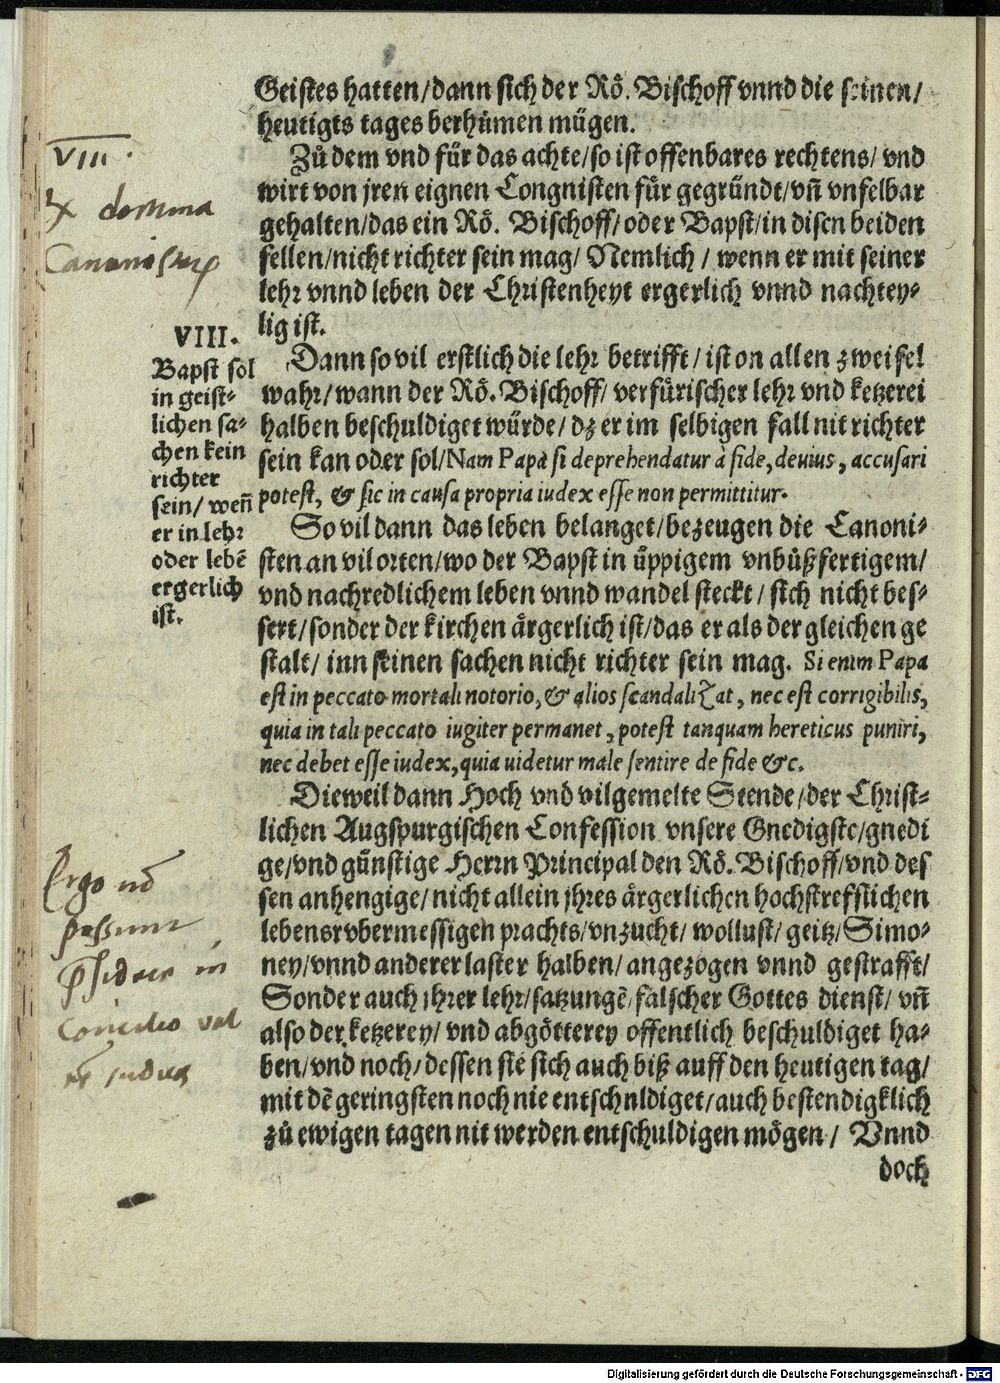 Geistes hatten/dann sich der Rö. Bischoff vnnd die seinen/
heutigts tages berhümen mügen.
Zů dem vnd für das achte/so ist offenbares rechtens/ vnd
wirt von jren eignen Congnisten für gegründt/vñ vnfelbar
gehalten/das ein Rö. Bischoff/oder Bapst/in disen beiden
fellen/nicht richter sein mag/ Nemlich / wenn er mit seiner
lehr vnnd leben der Christenheyt ergerlich vnnd nachtey-
lig ist.
Dann so vil erstlich die lehr betrifft/ist on allen zweifel
wahr/wann der Rö. Bischoff/ verfürischer lehr vnd ketzerei
halben beschuldiget würde/ dz er im selbigen fall nit richter
sein kan oder sol/Nam Papa si deprehendatur à fide, deuius, accusari
potest, & sic in causa propria iudex esse non permittitur.
So vil dann das leben belanget/bezeugen die Canoni-
sten an vil orten/wo der Bapst in üppigem vnbůßfertigem/
vnd nachredlichem leben vnnd wandel steckt / sich nicht bes-
sert/sonder der kirchen ärgerlich ist/das er als der gleichen ge
stalt/ inn seinen sachen nicht richter sein mag. Si enim Papa
est in peccato mortali notorio, & alios scandalizat, nec est corrigibilis,
quia in tali peccato iugiter permanet, potest tanquam hereticus puniri,
nec debet esse iudex, quia uidetur male sentire de fide &c.
Dieweil dann Hoch vnd vilgemelte Stende/der Christ-
lichen Augspurgischen Confession vnsere Gnedigste/gnedi
ge/vnd günstige Herrn Principal den Rö. Bischoff/vnd des
sen anhengige/nicht allein jhres ärgerlichen hochstrefflichen
lebens vbermessigen prachts/vnzucht/ wollust/ geitz/Simo-
ney/vnnd anderer laster halben/ angezogen vnnd gestrafft/
Sonder auch jhrer lehr/satzungẽ falscher Gottes dienst/ vñ
also der ketzerey/ vnd abgötterey offentlich beschuldiget ha-
ben/vnd noch/dessen sie sich auch biß auff den heutigen tag/
mit dẽ geringsten noch nie entschuldiget/auch bestendigklich
zů ewigen tagen nit werden entschuldigen mögen/ Vnnd
doch
VIII.
VIII.
Bapst sol
in geist-
lichen sa-
chen kein
richter
sein/ weñ
er in lehr
oder lebẽ
ergerlich
ist.
Ergo nõ
possunt
in
Concilio vel
Digitalisierung gefördert durch die Deutsche Forschungsgemeinschaft - DFG